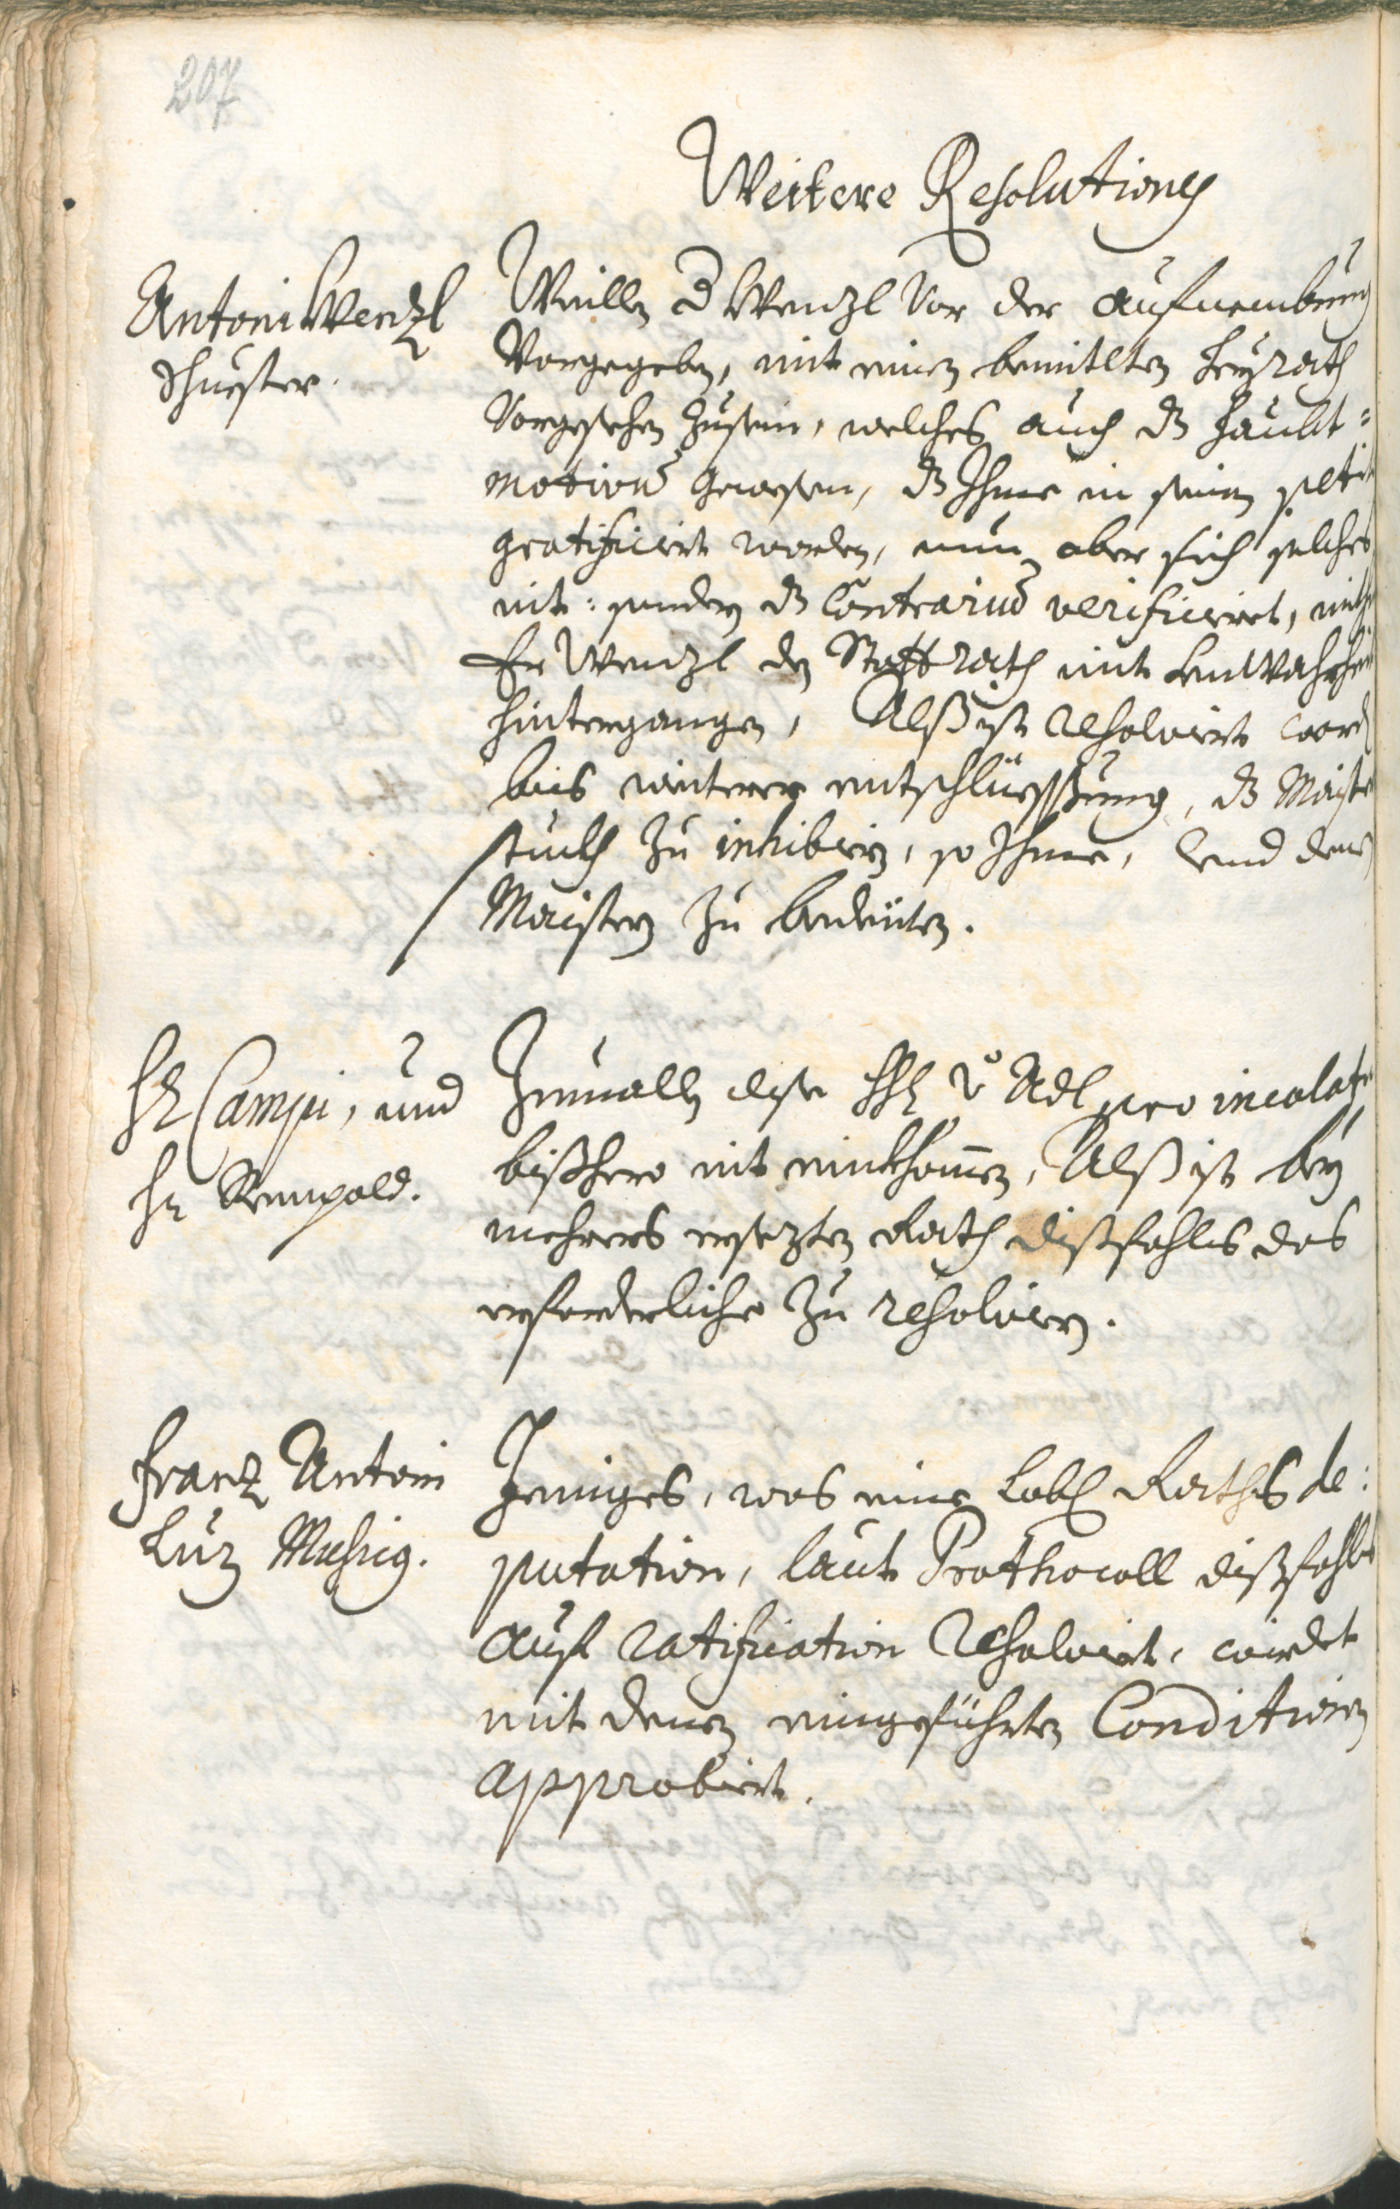 207
Weitere Resolutiones
Antoni Wenzl
Schuester.
Weillen d Wenzl vor der aufnembung
Vorgegeben, mit einen bemitlten heyrath
vorgesehen zusein, welches auch dz haubt=
motivum gewesen, dz Ihme in seinen petito
gratificirt worden, nun aber sich solches
nit: sondern dz Contrarium verificiret, mithin
Er Wenzl den Statt rath mit
hintergangen, Alß ist resolvirt word
bis weiterer entschlüessung, dz Maister
stuckh zu inhibiern, so Ihme, vnd denen
Maistern zu bedeuten.
Hr Campi, und
Hr Rempold.
Zumallen dise HHr v Adl pro incolatu
bißhero nit einkhomen, Alß ist bey
mehrers ersezten Rath dißfahls das
erforderliche zu resolviern.
Franz Antoni
Luz Messing.
Jeniges, was eine Lobl Raths de:
putation, laut Prothocoll dißfahls
auf ratification resolvirt, würdet
mit denen eingeführten Conditionen
approbiert.